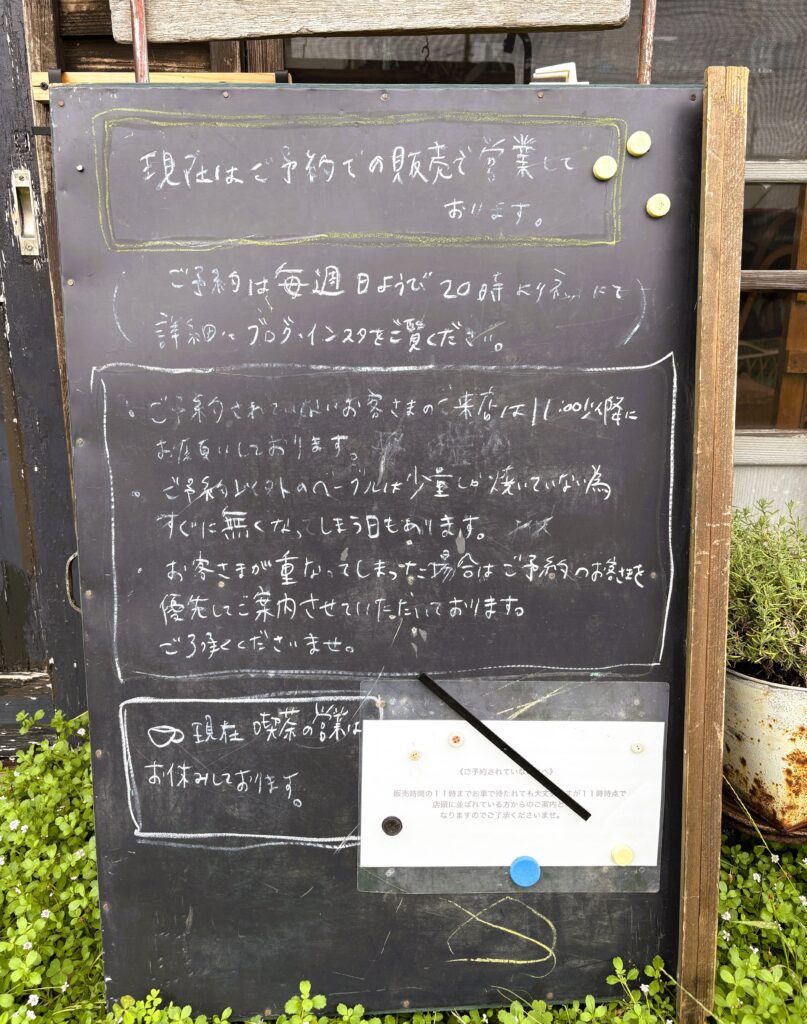 現在はご予約での販売で営業して
おります。
ご予約は毎週日ようび20時よりネットにて
詳細はブログ・インスタをご覧ください。
・ご予約されていないお客さまのご来店は11:00以降に
お願いしております。
・ご予約以外のベーグルは少量しか焼いていない為
すぐに無くなってしまう日もあります。
・お客さまが重なってしまった場合はご予約のお客さまを
優先してご案内させていただいております。
ご了承くださいませ。
現在 喫茶の営業は
お休みしております。
《ご予約されていない
販売時間の11時までお車で待たれても大丈 が11時時点で
店頭に並ばれている方からのご案内と
なりますのでご了承くださいませ。